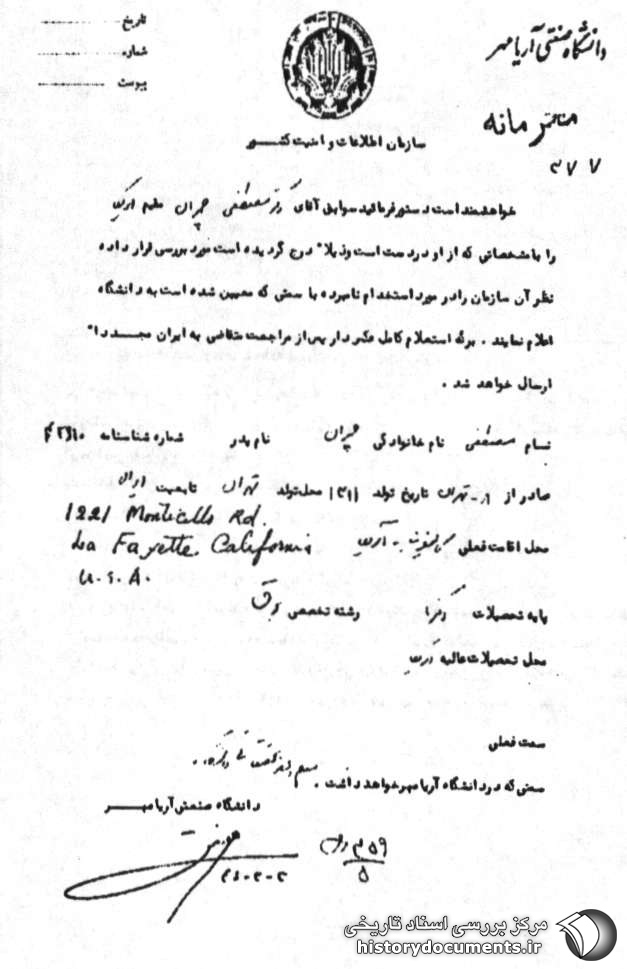 دانشگاه صنعتی آریامهر
تاریخ
شماره
پیوست
محرمانه
۳۷۷
سازمان اطلاعات و امنیت کشور
خواهشمند است دستور فرمائید سوابق آقای دکتر مصطفی چمران مقیم آمریکا
را با مشخصاتی که از او در دست است و ذیلا" درج گردیده است مورد بررسی قرار داده
نظر آن سازمان را در مورد استخدام نامبرده با سمتی که معین شده است به دانشگاه
اعلام نمایند . برگ استعلام کامل عکس دار پس از مراجعت متقاضی به ایران مجددا"
ارسال خواهد شد .
نام مصطفی نام خانوادگی چمران نام پدر شماره شناسنامه
صادر از تهران تاریخ تولد ۱۳۱۱ محل تولد تهران تابعیت ایران
محل اقامت فعلی کالیفرنیا - آمریکا
1221 Monticello Rd.
La Fayette, California
U.S.A.
پایه تحصیلات دکترا رشته تخصصی برق
محل تحصیلات عالیه آمریکا
سمت فعلی
سمتی که در دانشگاه آریامهر خواهد داشت .
دانشگاه صنعتی آریامهر
۳۵۹
۵
مرکز بررسی اسناد تاریخی
historydocuments.ir